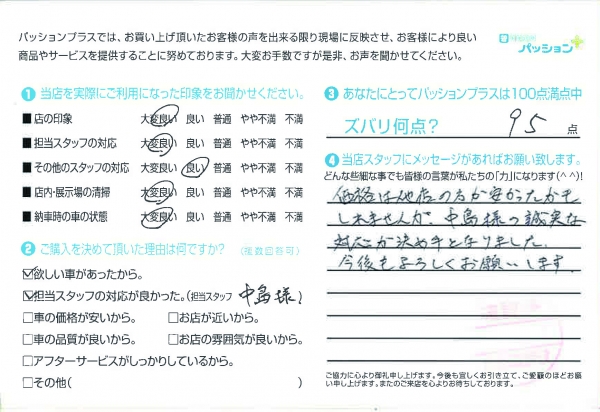 パッションプラスでは、お買い上げ頂いたお客様の声を出来る限り現場に反映させ、お客様により良い
商品やサービスを提供することに努めております。大変お手数ですが是非、お声を聞かせてください。
パッション
❶ 当店を実際にご利用になった印象をお聞かせください。
■ 店の印象 大変良い 良い 普通 やや不満 不満
■ 担当スタッフの対応 大変良い 良い 普通 やや不満 不満
■ その他のスタッフの対応 大変良い 良い 普通 やや不満 不満
■ 店内・展示場の清掃 大変良い 良い 普通 やや不満 不満
■ 納車時の車の状態 大変良い 良い 普通 やや不満 不満
❷ ご購入を決めて頂いた理由は何ですか? (複数回答可)
☑欲しい車があったから。
☑担当スタッフの対応が良かった。(担当スタッフ 中島様)
□車の価格が安いから。 □お店が近いから。
□車の品質が良いから。 □お店の雰囲気が良いから。
□アフターサービスがしっかりしているから。
□その他( )
❸ あなたにとってパッションプラスは100点満点中
ズバリ何点? 95 点
❹ 当店スタッフにメッセージがあればお願い致します。
どんな些細な事でも皆様の言葉が私たちの「力」になります(^^)!
価格は他店の方が安かったかも
しれませんが、中島様の誠実な
対応が決め手となりました。
今後もよろしくお願いします。
ご協力に心より御礼申し上げます。今後も宜しくお引き立て、ご愛顧のほどお願
い申し上げます。またのご来店を心よりお待ちしております。